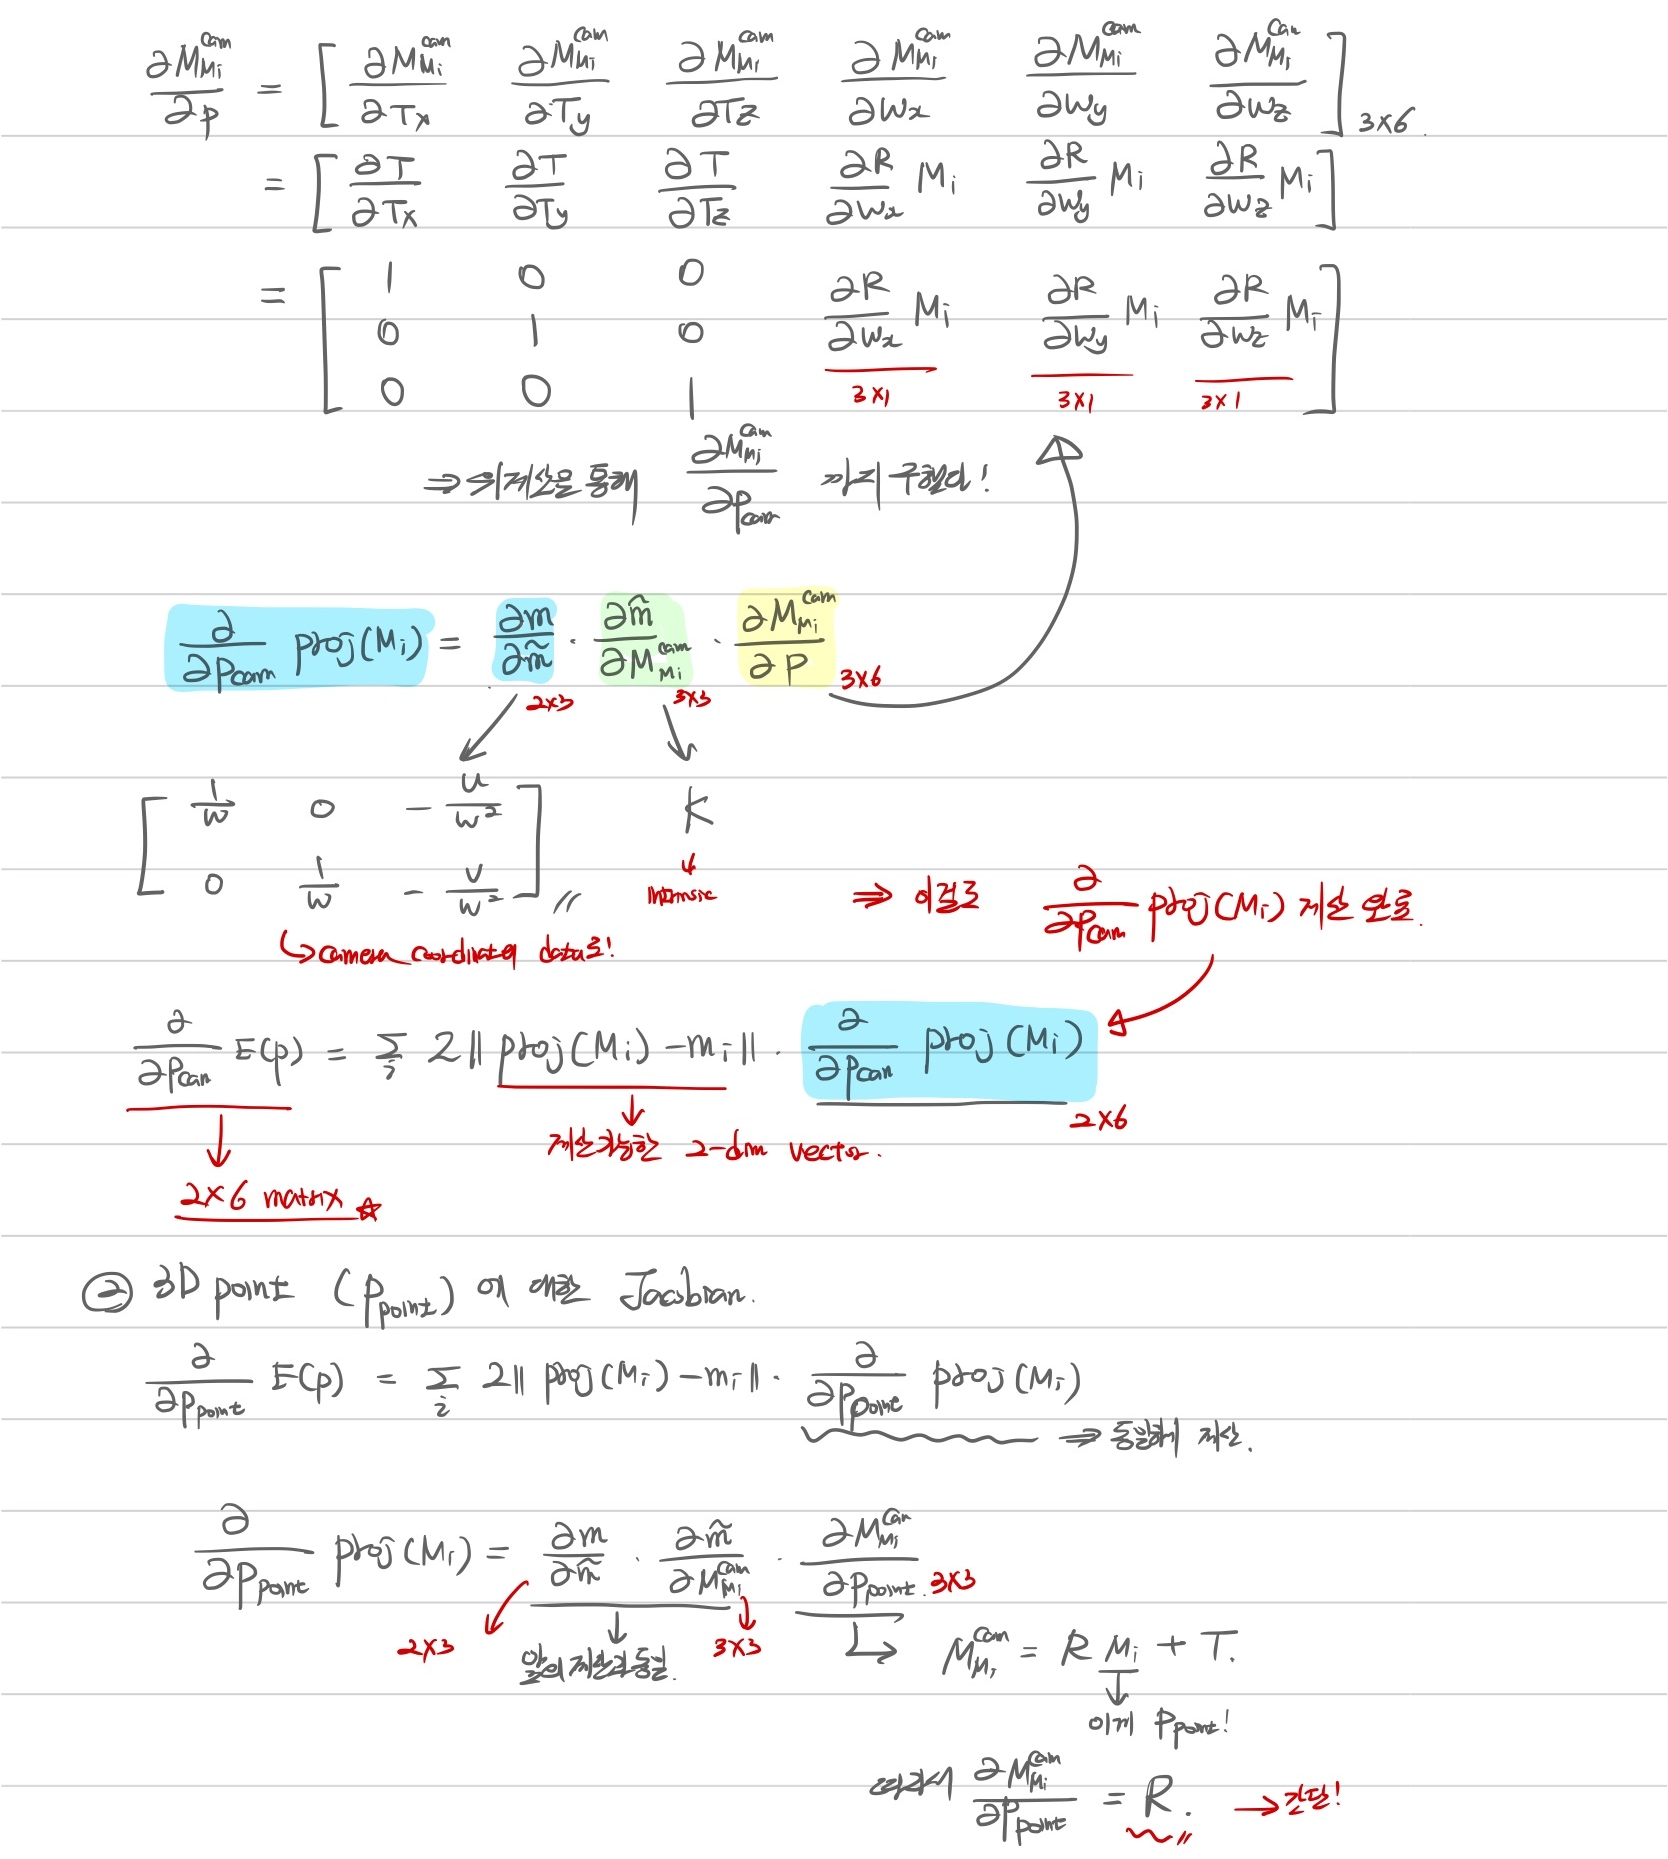 ∂M_{Mi}^{cam} / ∂p = [ ∂M_{Mi}^{cam}/∂T_x  ∂M_{Mi}^{cam}/∂T_y  ∂M_{Mi}^{cam}/∂T_z  ∂M_{Mi}^{cam}/∂w_x  ∂M_{Mi}^{cam}/∂w_y  ∂M_{Mi}^{cam}/∂w_z ] 3×6
= [ ∂T/∂T_x  ∂T/∂T_y  ∂T/∂T_z  ∂R/∂w_x M_i  ∂R/∂w_y M_i  ∂R/∂w_z M_i ]
= [ 1 0 0
0 1 0  ∂R/∂w_x M_i  ∂R/∂w_y M_i  ∂R/∂w_z M_i
0 0 1 ]
3×1 3×1 3×1
⇒ 위 계산을 통해 ∂M_{Mi}^{cam}/∂p_{cam} 까지 구했다!
∂/∂p_{cam} proj(M_i) = ∂m/∂m̃ · ∂m̃/∂M_{Mi}^{cam} · ∂M_{Mi}^{cam}/∂p
2×3 3×3 3×6
[ 1/w 0 -u/w²
0 1/w -v/w² ] //
K
↓
intrinsic
↳ camera coordinate의 data로!
⇒ 이걸로 ∂/∂p_{cam} proj(M_i) 계산 완료.
∂/∂p_{cam} E(p) = Σ_i 2‖proj(M_i) - m_i‖ · ∂/∂p_{cam} proj(M_i)
2×6
계산가능한 2-dim vector.
2×6 matrix ☆
② 3D point (p_{point}) 에 대한 Jacobian.
∂/∂p_{point} E(p) = Σ_i 2‖proj(M_i) - m_i‖ · ∂/∂p_{point} proj(M_i)
⇒ 동일하게 계산.
∂/∂p_{point} proj(M_i) = ∂m/∂m̃ · ∂m̃/∂M_{Mi}^{cam} · ∂M_{Mi}^{cam}/∂p_{point} 3×3
2×3 앞의 계산과 동일. 3×3
↳ M_{Mi}^{cam} = R M_i + T.
이게 p_{point}!
따라서 ∂M_{Mi}^{cam}/∂p_{point} = R. // → 간단!